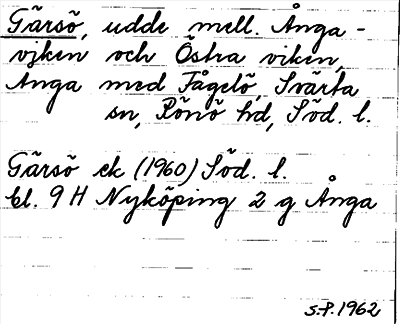 Gärsö, udde mell. Ånga-
viken och Östra viken,
Ånga med Fågelö, Svärta
sn, Rönö hd, Söd. l.
Gärsö ek (1960) Söd. l.
bl. 9 H Nyköping 2 g Ånga
S.P. 1962